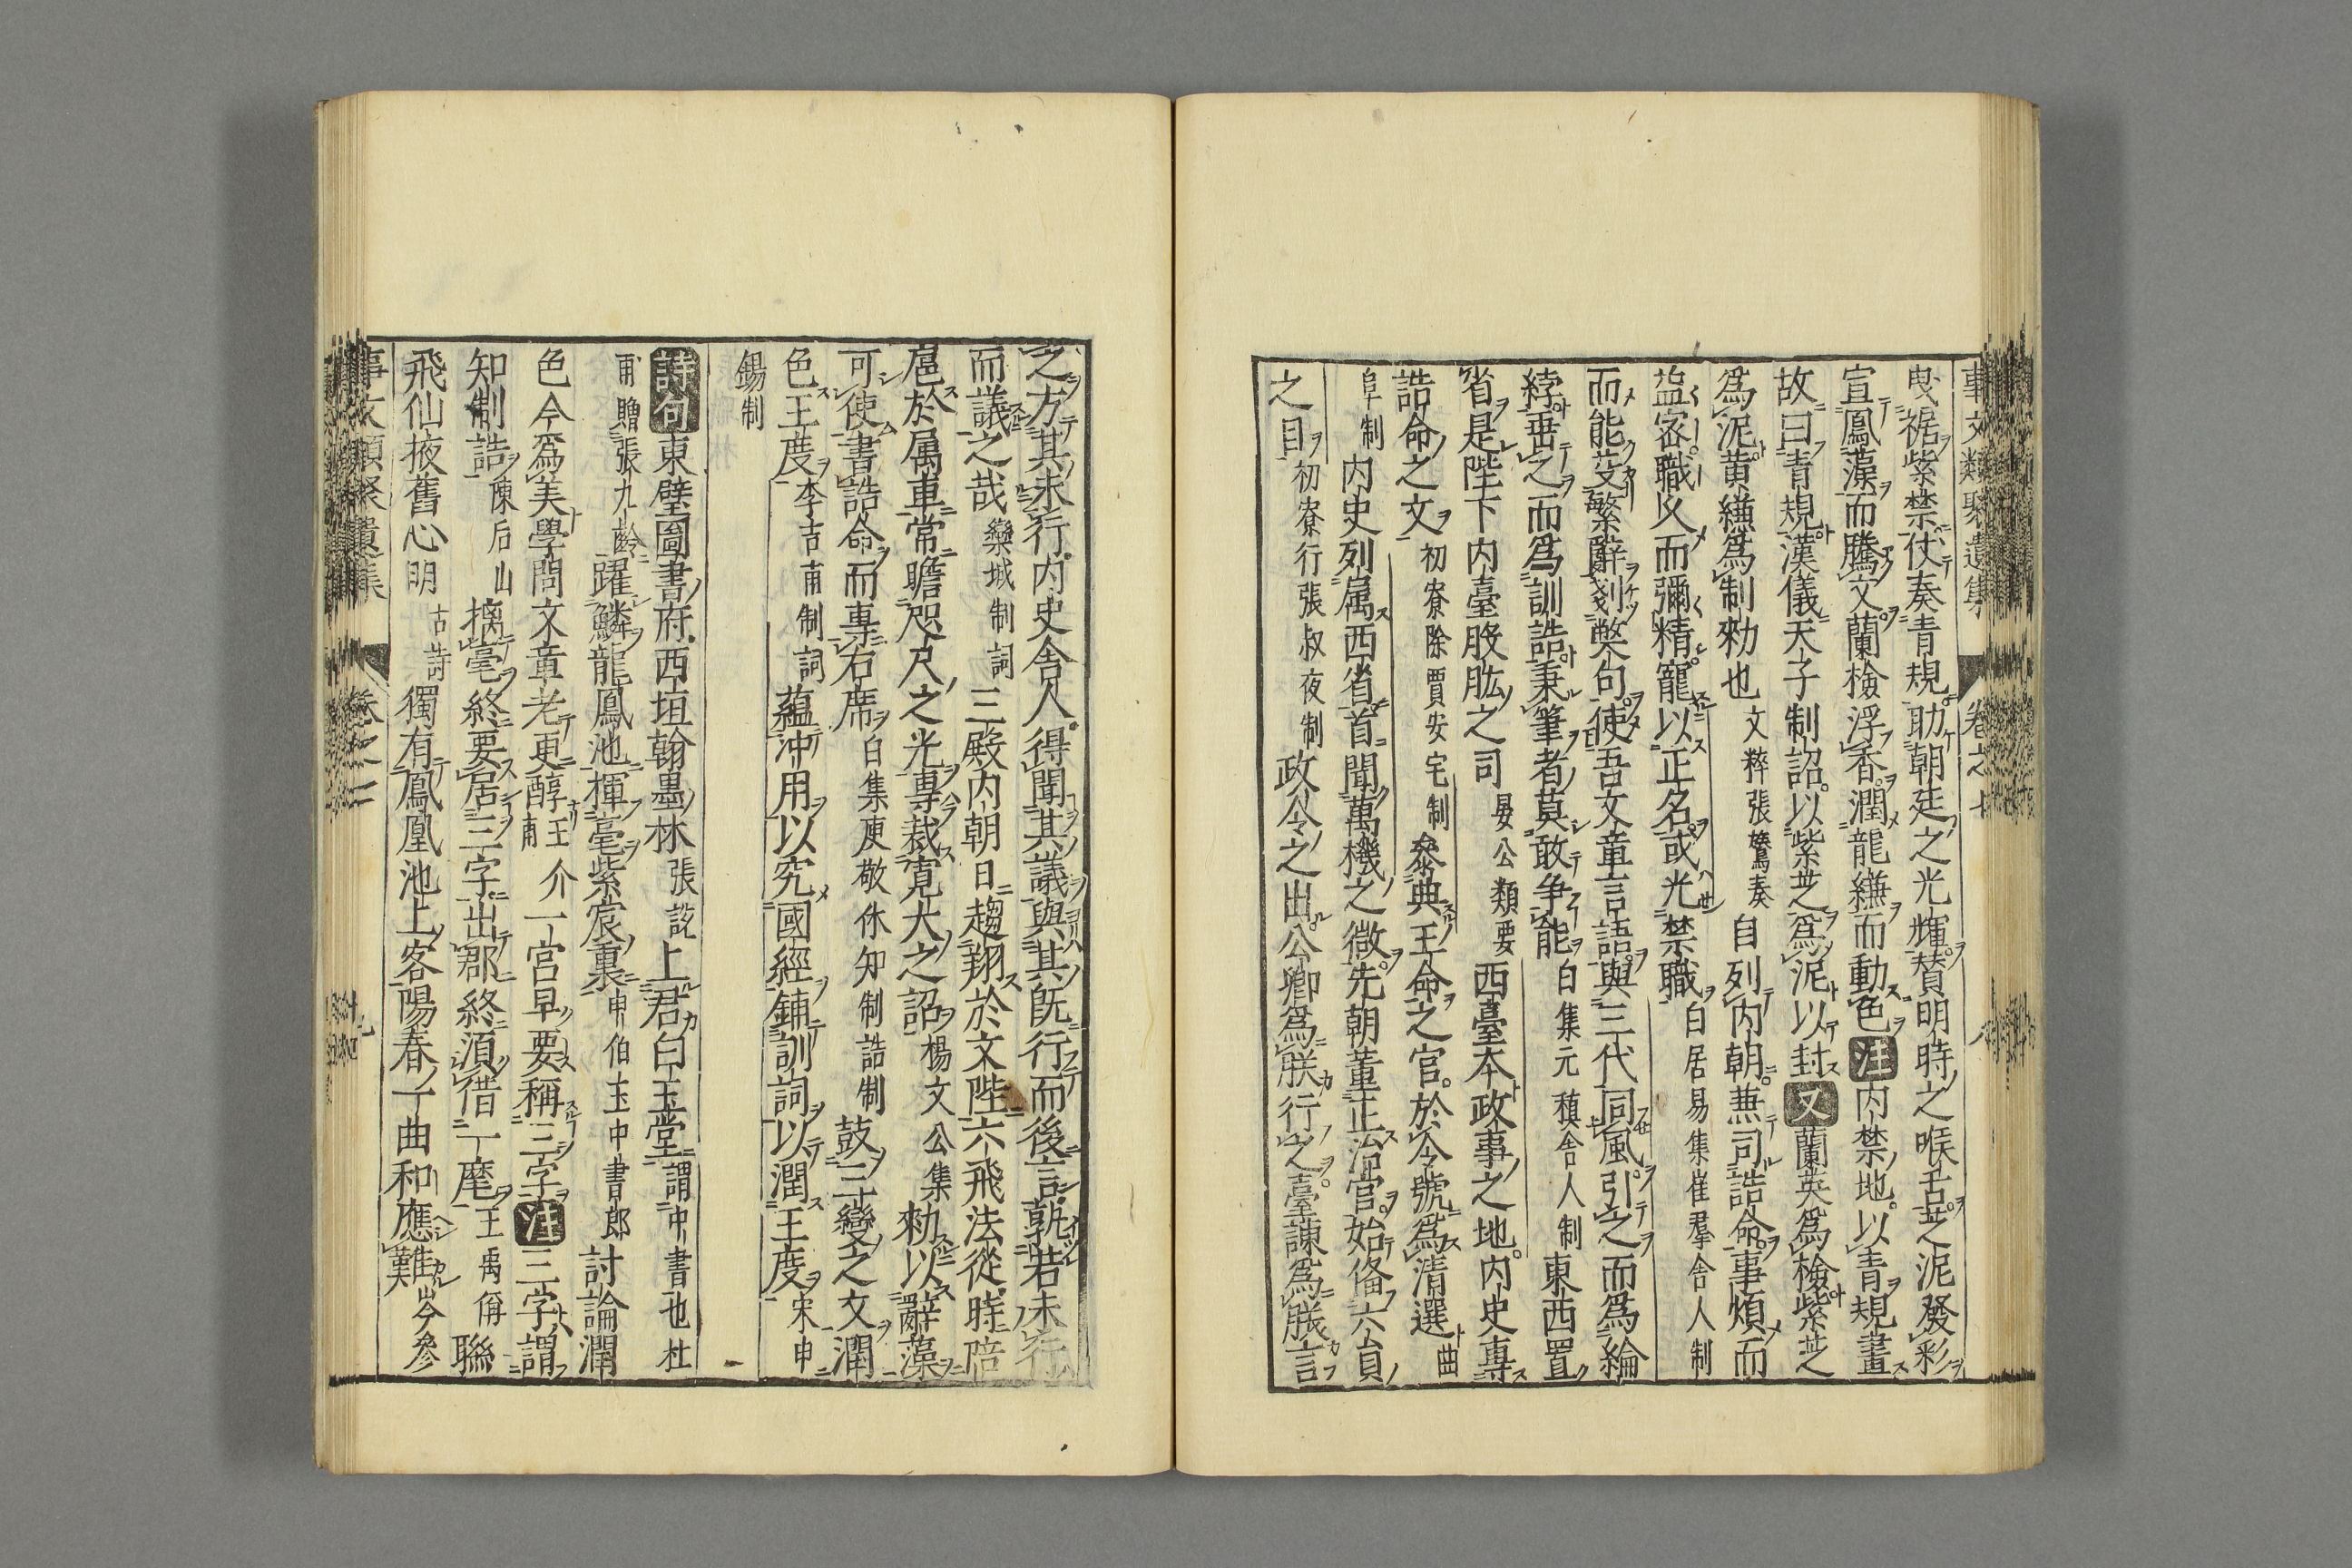 事文類聚遺集 卷之七 八
曳裾紫禁仗奏青規助朝廷之光輝賛明時之喉舌芝泥發彩
宣鳳藻而騰文蘭檢浮香潤龍縑而動色注内禁地以青規畫
故曰青規漢儀天子制詔以紫芝爲泥以封又蘭英爲檢紫芝
爲泥黄縑爲制勑也文粹張鷟奏自列内朝兼司誥命事煩而
益宻職久而彌精寵以正名或光禁職白居易集崔羣舍人制
而能芟繁辭剗弊句使吾文章言語與三代同風引之而爲綸
綍垂之而爲訓誥秉筆者莫敢争能白集元稹舍人制東西置
省是陛下内臺股肱之司晏公類要西臺本政事之地内史專
誥命之文初寮除賈安宅制叅典王命之官於今號爲清選曲
阜制内史列属西省首聞萬機之微先朝董正治官始俻六貟
之目初寮行張叔夜制政令之出公卿爲朕行之臺諫爲朕言
之方其未行内史舍人得聞其議與其旣行而後言孰若未行
而議之哉欒城制詞三殿内朝日趨翔於文陛六飛法從時陪
扈於属車常瞻咫尺之光專裁寛大之詔楊文公集勑以辭藻
可使書誥命而專右席白集庾敬休知制誥制鼓三變之文潤
色王度李吉甫制詞蘊沖用以究國經鋪訓詞以潤王度宋申
錫制
詩句東壁圖書府西垣翰墨林張説上君白玉堂謂中書也杜
甫贈張九齡躍鱗龍鳳池揮毫紫宸裏申伯玉中書郎討論潤
色今爲美學問文章老更醇王介甫一宮早要稱三字注三字謂
知制誥陳后山摛毫終要居三字出郡終須借一麾王禹偁聯
飛仙掖舊心明古詩獨有鳳凰池上客陽春一曲和應難岑參
事文類聚遺集 卷之二 十九